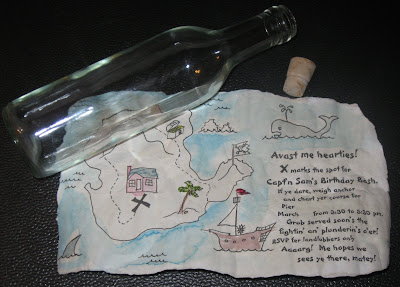 Avast me hearties!
X marks the spot for
Capt'n Sam's Birthday Bash.
If ye dare, weigh anchor
and chart yer course for
Pier
March from 3:30 to 5:30 pm.
Grub served soon's the
fightin' an' plunderin's o'er!
RSVP for landlubbers only
Aaaarg! Me hopes we
sees ye there, matey!